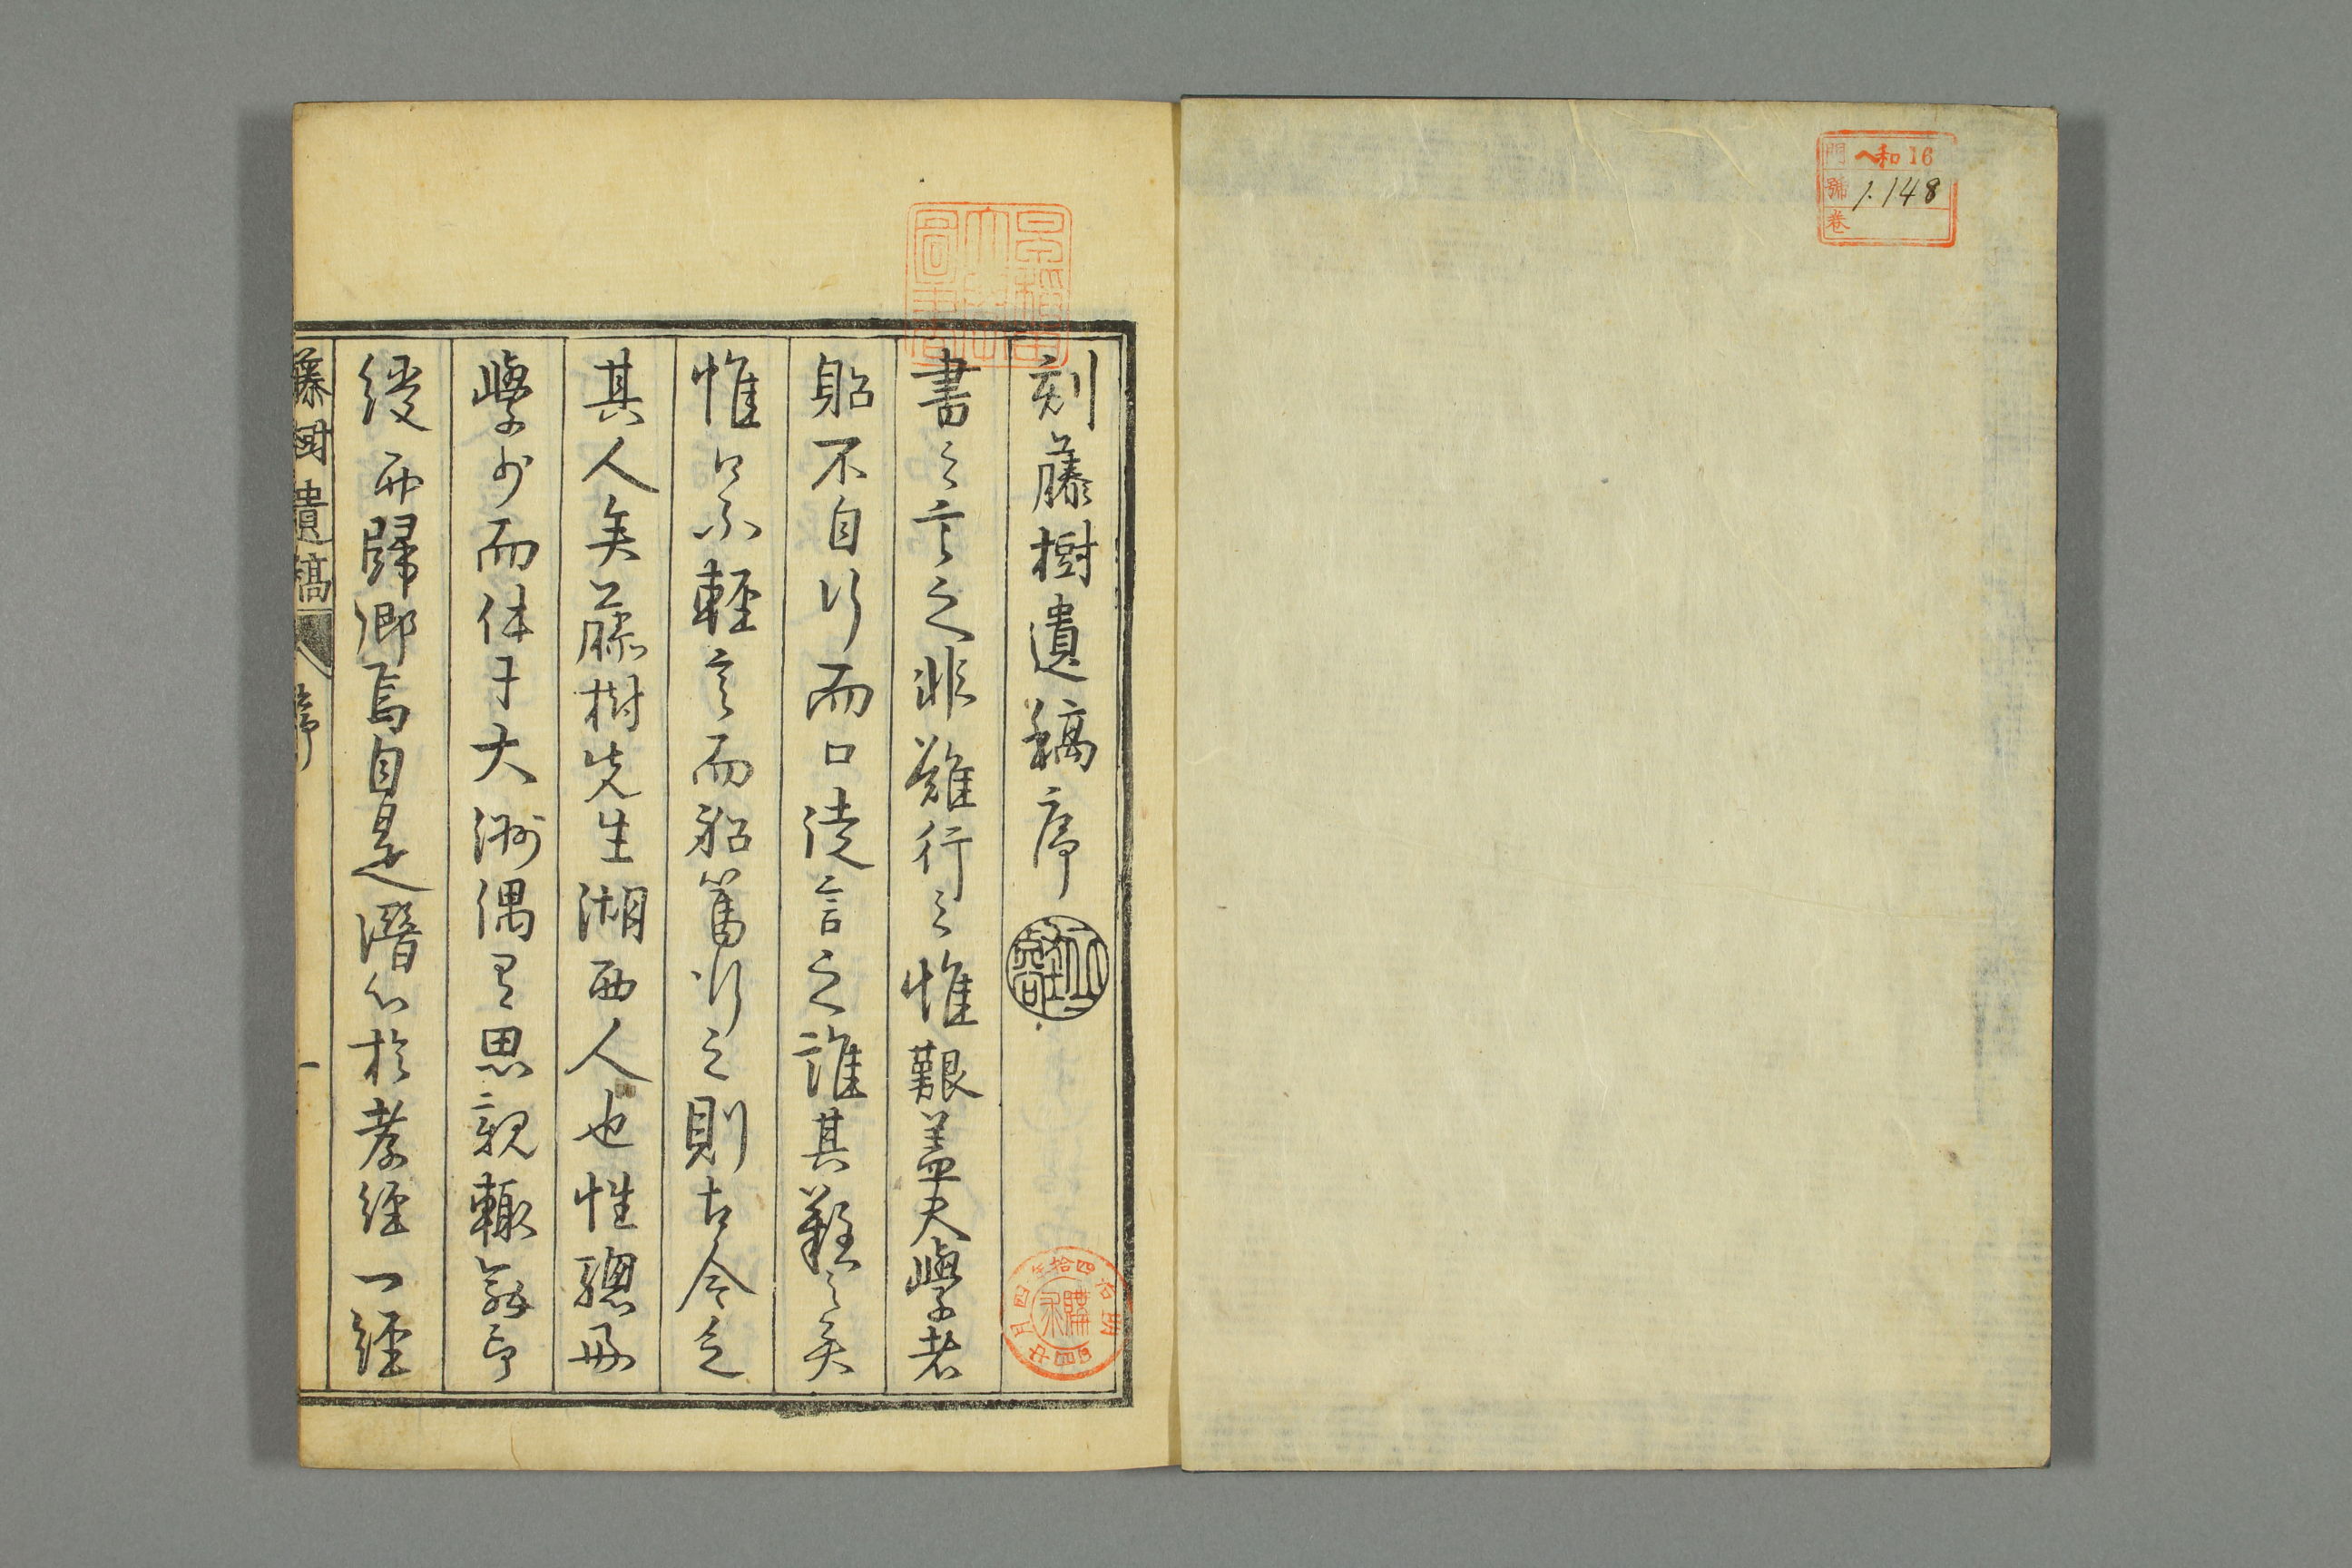 門 ヘ和16
號 1.148
卷
刻藤樹遺稿序
書之言之非難行之惟艱蓋夫學者
躬不自行而口徒言之誰其難之矣
惟口不輕言而躬篤行之則古今乏
其人矣藤樹先生湖西人也性聰毋
學少而仕于大洲偶有思親輙辭印
綬西歸鄉焉自是潛心於孝經一經
藤樹遺稿 序 一
明治四拾四年四月廿四日
購求